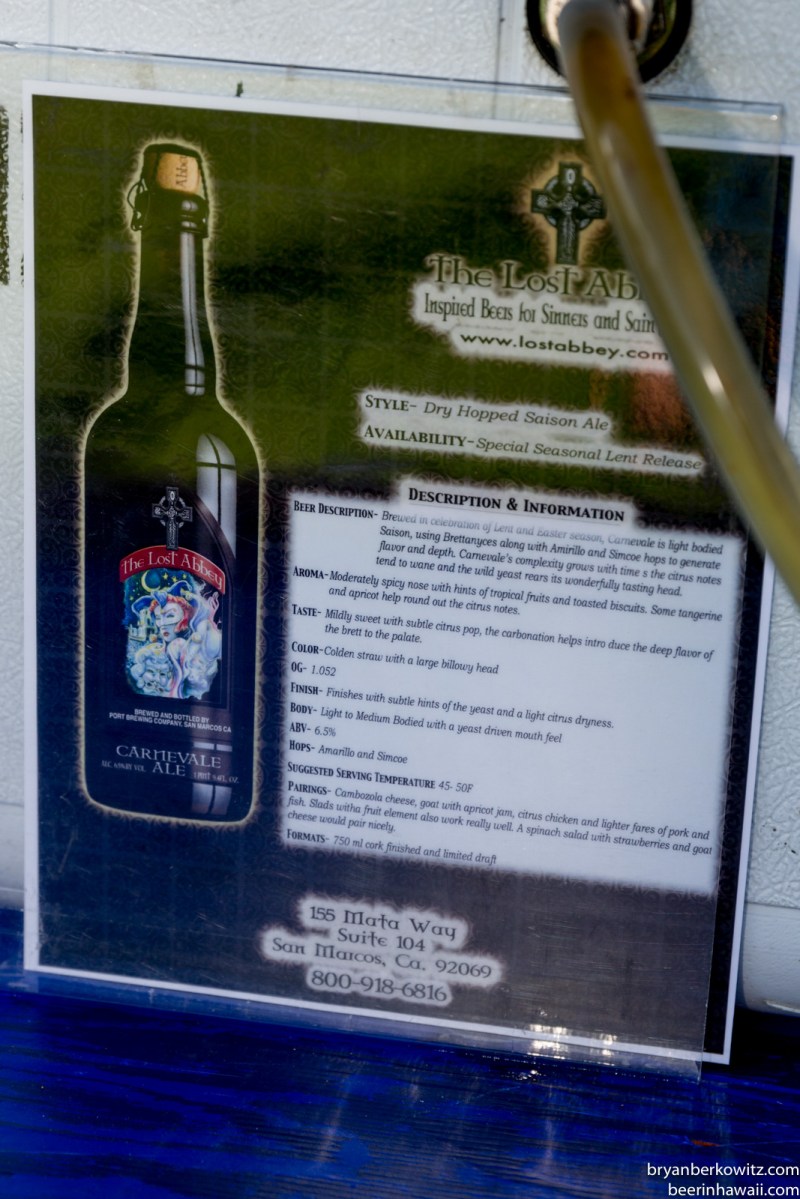 Abbe
The Lost Ab
Inspired Beers for Sinners and Sain
www.lostabbey.com
STYLE- Dry Hopped Saison Ale
AVAILABILITY- Special Seasonal Lent Release
DESCRIPTION & INFORMATION
BEER DESCRIPTION- Brewed in celebration of Lent and Easter season, Carnevale is light bodied
Saison, using Brettanyces along with Amirillo and Simcoe hops to generate
flavor and depth. Carnevale's complexity grows with time s the citrus notes
tend to wane and the wild yeast rears its wonderfully tasting head.
AROMA- Moderately spicy nose with hints of tropical fruits and toasted biscuits. Some tangerine
and apricot help round out the citrus notes.
TASTE- Mildly sweet with subtle citrus pop, the carbonation helps intro duce the deep flavor of
the brett to the palate.
COLOR- Colden straw with a large billowy head
OG- 1.052
FINISH- Finishes with subtle hints of the yeast and a light citrus dryness.
BODY- Light to Medium Bodied with a yeast driven mouth feel
ABV- 6.5%
HOPS- Amarillo and Simcoe
SUGGESTED SERVING TEMPERATURE 45- 50F
PAIRINGS- Cambozola cheese, goat with apricot jam, citrus chicken and lighter fares of pork and
fish. Slads witha fruit element also work really well. A spinach salad with strawberries and goat
cheese would pair nicely.
FORMATS- 750 ml cork finished and limited draft
The Lost Abbey
BREWED AND BOTTLED BY
PORT BREWING COMPANY, SAN MARCOS CA
CARNEVALE
ALE
ALC 6.5% BY VOL.
1 PINT 9.4 FL. OZ.
155 Mata Way
Suite 104
San Marcos, Ca. 92069
800-918-6816
bryanberkowitz.com
beerinhawaii.com